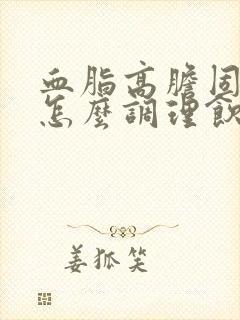 血脂高膽固
怎麼調理飲
姜狐笑